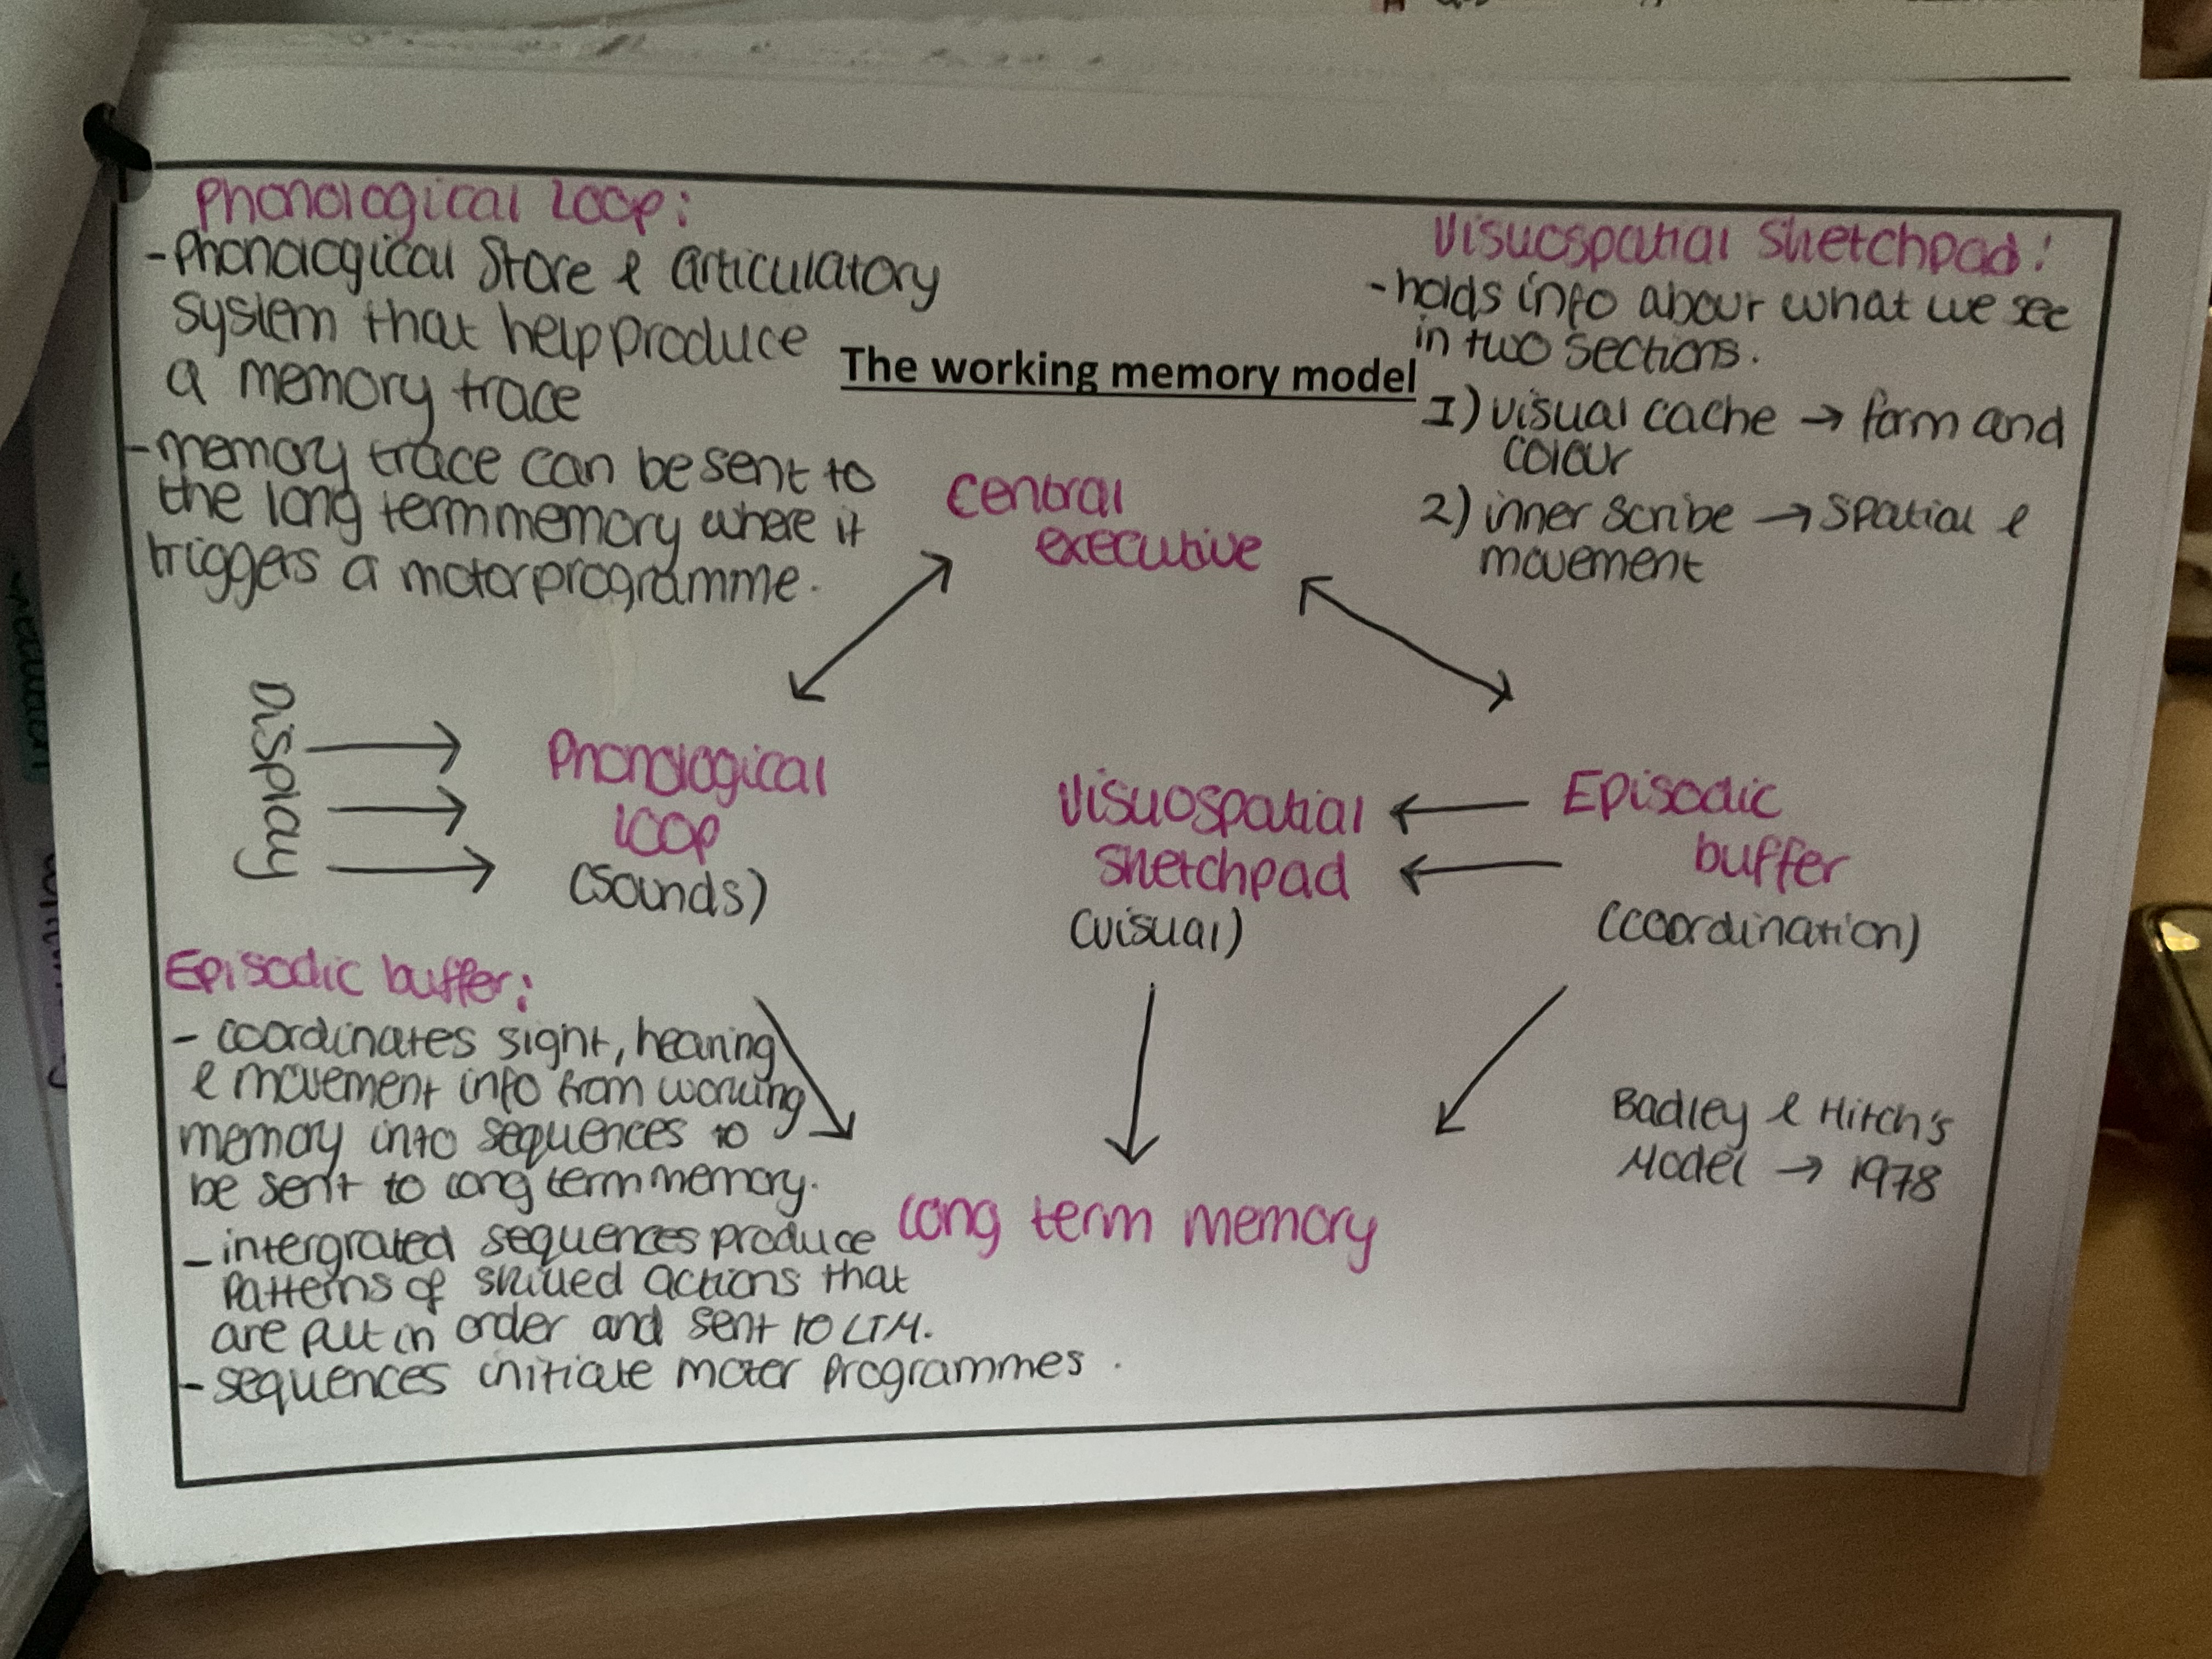 Phonological Loop:
- Phonological Store & articulatory
system that help produce
a memory trace
- memory trace can be sent to
the long term memory where it
triggers a motor programme.
Visuospatial Sketchpad:
- holds info about what we see
in two sections.
1) visual cache → form and
colour
2) inner scribe → spatial &
movement
The working memory model
Central
executive
Display
Phonological
Loop
(sounds)
Visuospatial
Sketchpad
(visual)
Episodic
buffer
(coordination)
Episodic buffer:
- coordinates sight, hearing
& movement info from working
memory into sequences to
be sent to long term memory.
- intergrated sequences produce
patterns of skilled actions that
are put in order and sent to LTM.
- sequences initiate moter programmes.
Long term memory
Badley & Hitch's
Model → 1978